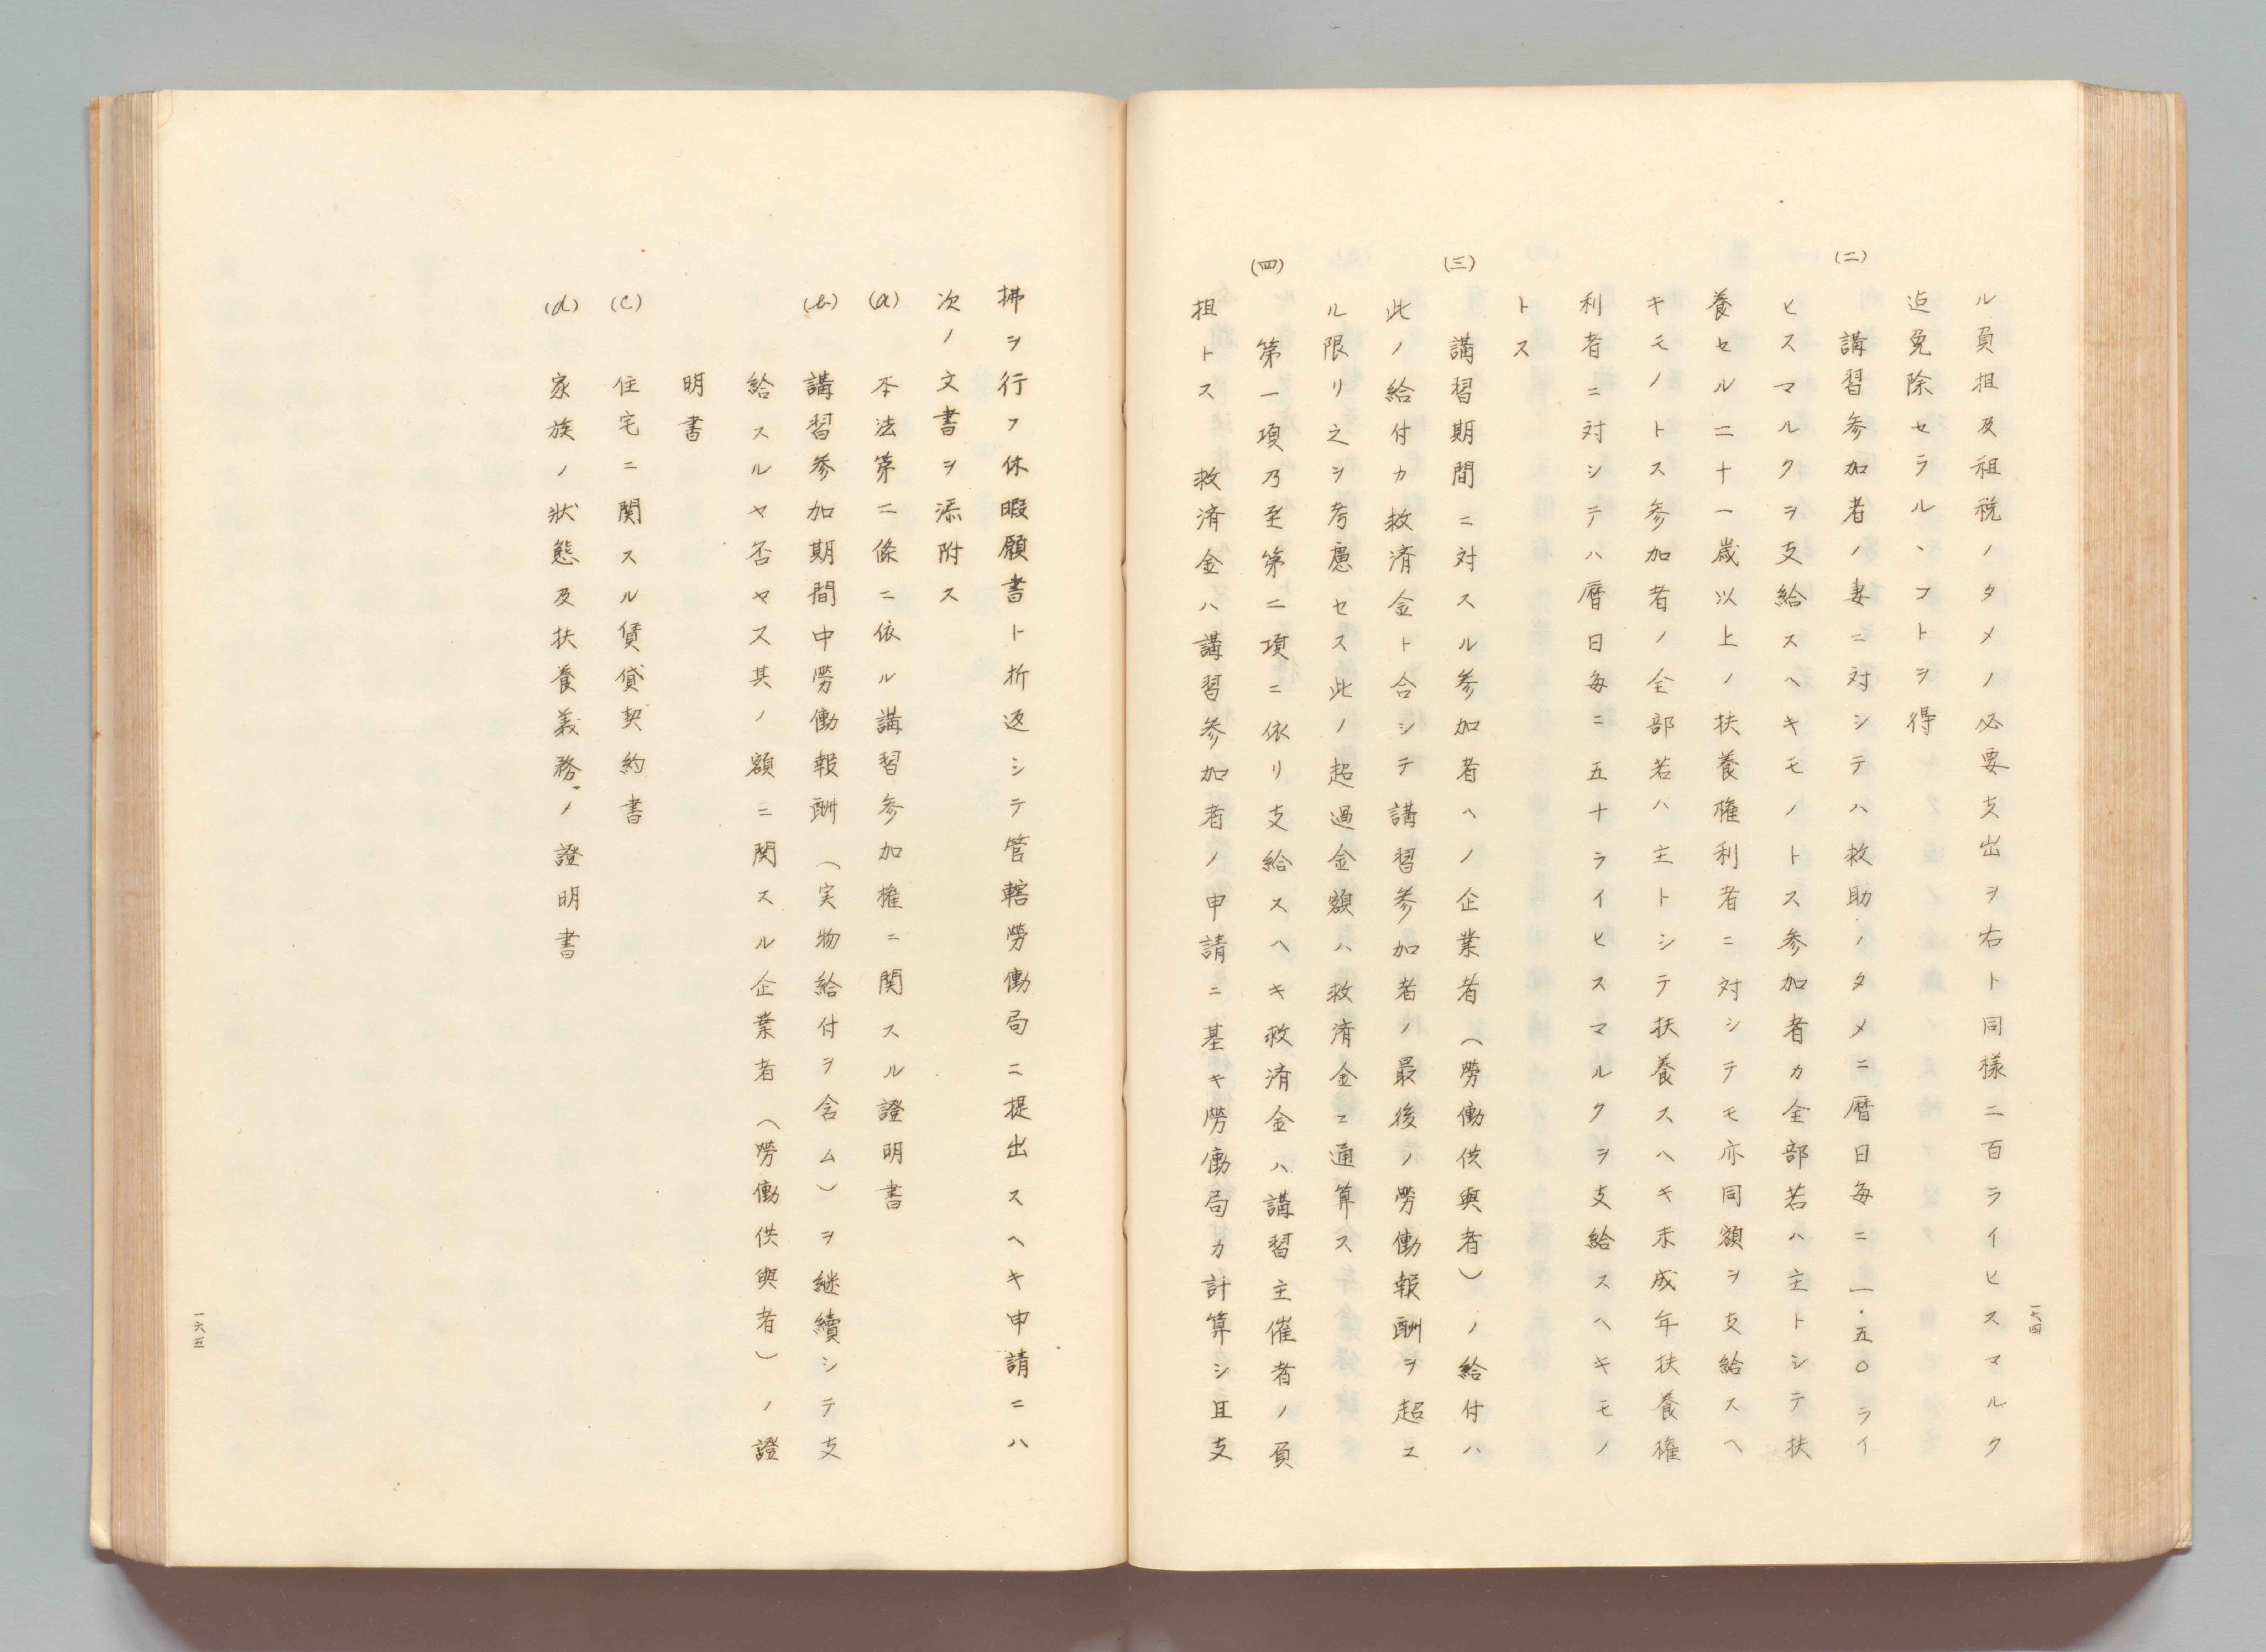 一六四
ル負担及祖税ノタメノ必要支出ヲ右ト同様二百ライヒスマルク
迠免除セラルヽコトヲ得
(二) 講習参加者ノ妻ニ対シテハ救助ノタメニ暦日毎ニ一・五〇ライ
ヒスマルクヲ支給スヘキモノトス参加者カ全部若ハ主トシテ扶
養セル二十一歳以上ノ扶養権利者ニ対シテモ亦同額ヲ支給スヘ
キモノトス参加者ノ全部若ハ主トシテ扶養スヘキ未成年扶養権
利者ニ対シテハ暦日毎ニ五十ライヒスマルクヲ支給スヘキモノ
トス
(三) 講習期間ニ対スル参加者ヘノ企業者（勞働供與者）ノ給付ハ
此ノ給付カ救済金ト合シテ講習参加者ノ最後ノ勞働報酬ヲ超エ
ル限リ之ヲ考慮セス此ノ超過金額ハ救済金ニ通算ス
(四) 第一項乃至第二項ニ依リ支給スヘキ救済金ハ講習主催者ノ負
担トス 救済金ハ講習参加者ノ申請ニ基キ勞働局カ計算シ且支
拂ヲ行フ休暇願書ト折返シテ管轄勞働局ニ提出スヘキ申請ニハ
次ノ文書ヲ添附ス
(a) 本法第二條ニ依ル講習参加権ニ関スル證明書
(b) 講習参加期間中勞働報酬（実物給付ヲ含ム）ヲ継續シテ支
給スルヤ否ヤス其ノ額ニ関スル企業者（勞働供與者）ノ證
明書
(c) 住宅ニ関スル賃貸契約書
(d) 家族ノ状態及扶養義務ノ證明書
一六五